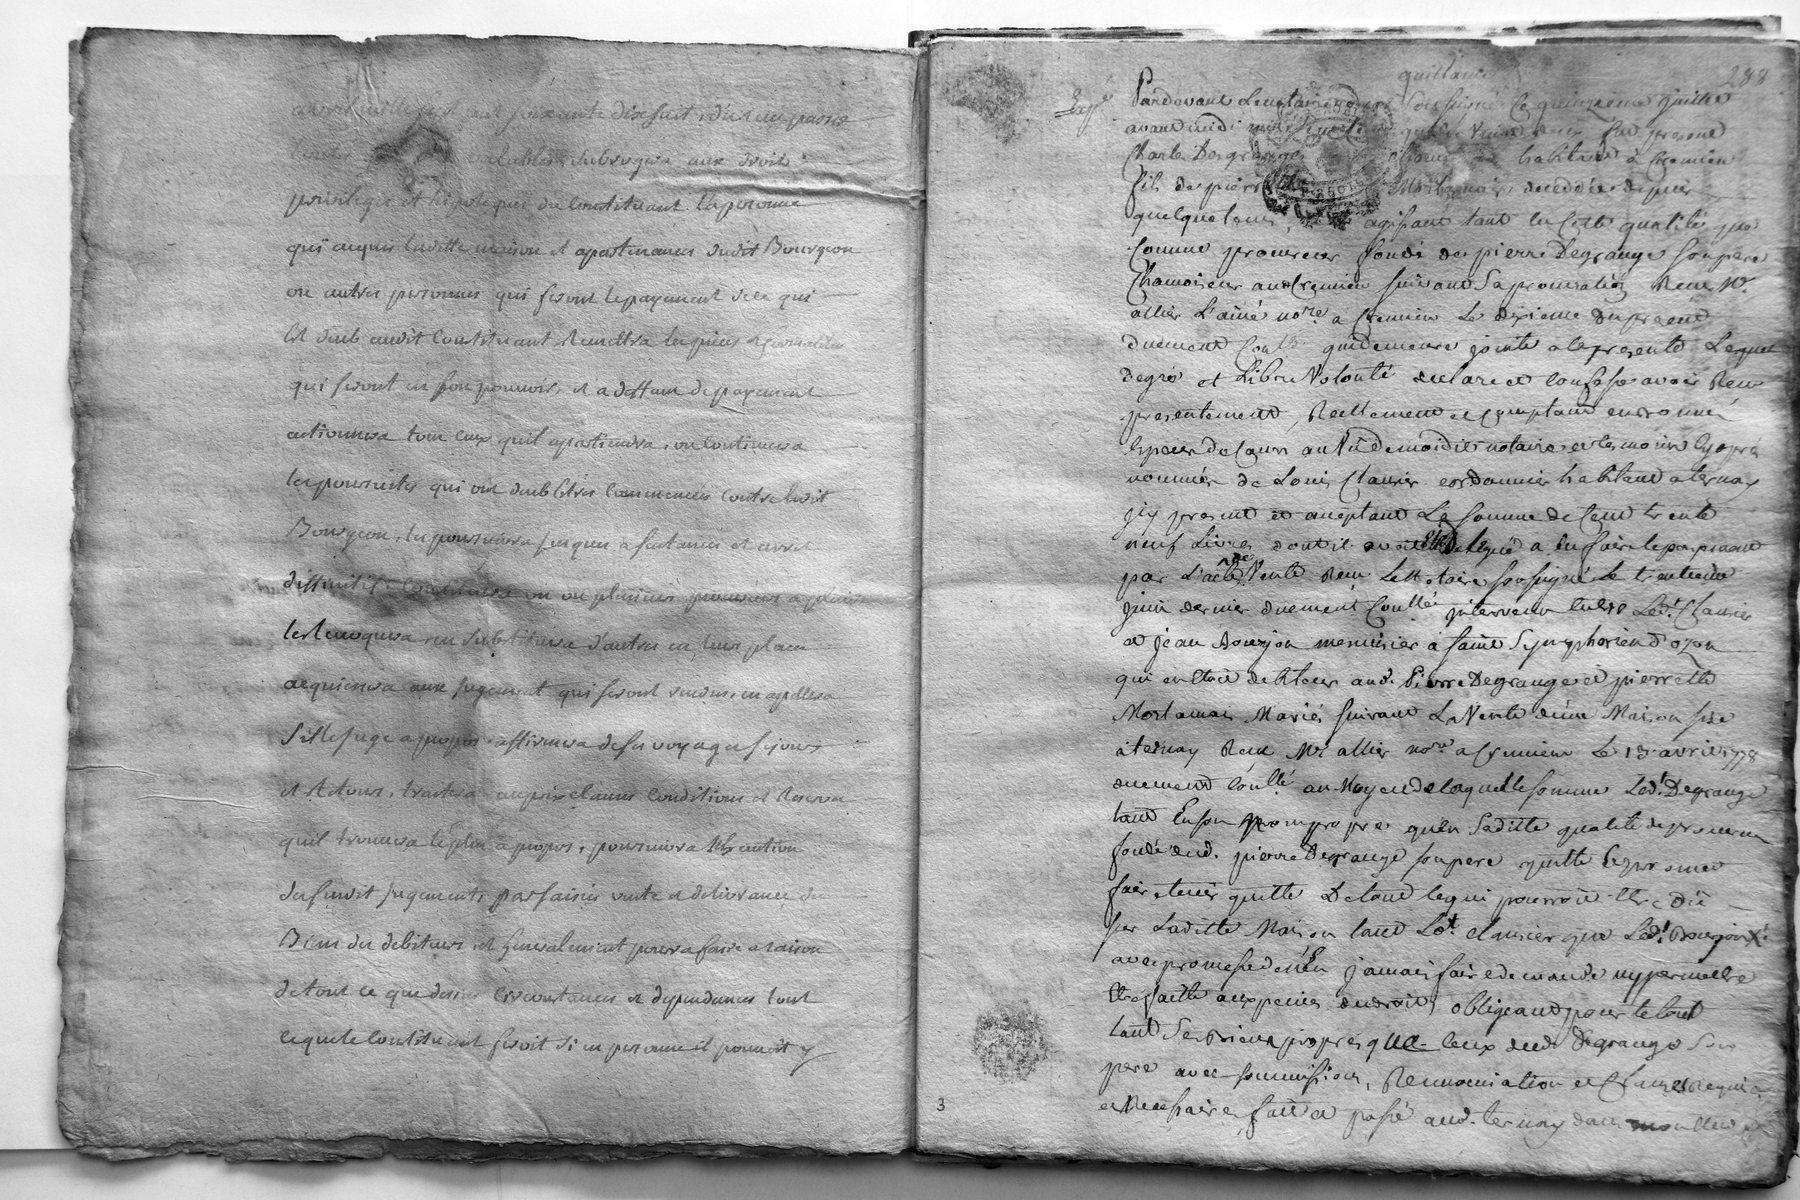 avril mille sept cent soixante dix huit, d'iceux passer
toutes valables subrogera aux droits
privileges et hipoteques du Constituant la personne
qui acquis laditte maison et apartenances dudit Bourgeon
ou autres personnes qui feront le payement de ce qui
Est deub audit Constituant Remettra les pieces et
qui seront en son pouvoir, et a deffaut de payement
actionnera tous ceux quil apartiendra, ou Continuera
les poursuites qui ont deub Etres Commencés Contre ledit
Bourgeon, les poursuivra jusques a sentances et arret
diffinitif. Constituera un ou plusieurs procureurs a plaid
les Revoquera en substituera d'autres en leurs place
acquiescera aux jugement qui seront rendus en apellera
Sil le juge a propos affirmera de ses voyages sejours
et Retours, traitera aux prix clauses Conditions et Reserve
quil trouvera le plus à propos, poursuivra l'Execution
desdit jugements par saisies vente et delivrance de
Biens des debiteurs et generalement pourra faire a raison
de tout ce que dessus Circonstances et dependances tout
ce que le Constituant feroit si en personne il pouvoit y
quittance 288
Expé
Pardevant Le notaire Soussigné Ce quinzieme juillet
avant midi mille sept cent quatre vingt deux fut present
Charle Desgranges habitant à Cremieu
fils de pierre Mortamais decedée depuis
quelque tems, agissant tant en Cette qualité que
Comme procureur fondé de pierre Degrange son pere
Chamoiseur audit Cremieu suivant Sa procuration Recue Me.
allier L'ainé nore. a Cremieu Le dixieme du present
duement Conllé qui demeure jointe a la presente Lequel
degré et Libre Volonté declare et Confesse avoir Recu
presentement, Reellement et Comptant en bonnes
Especes de Cours au Vû de moidit notaire et temoins Cy aprés
nommés de Louis Clavier cordonnier habitant a ternay
jcy present et acceptant La somme de Cent trente
neuf Livres dont il avoit Eté delegué a En faire le payement
par L'acte de Vente Recu Le Notaire soussigné Le trentieme
juin dernier duement Conllé jntervenu Entre Ledt. Clavier
et jean Bourjon menuisier à saint Symphorien d'ozon
qui en Etoit debiteur aud. Pierre Degrange et pierrette
Mortamais Mariés suivant La Vente d'une Maison sise
à ternay Recue Me allier nore a Cremieu Le 13 avril 1778
duement Conllé au Moyen de laquelle somme Ledt. Degrange
tant En son Nom propre qu'en Saditte qualité de procureur
fondé dud. pierre Degrange son pere quitte Et promet
faire tenir quitte De tout ce qui pourroit Etre Dû
sur Laditte Maison tant Ledt. clavier que Ledt. Bourjon
avec promesse de n'En jamais faire demande ny permettre
Etre faitte aux peines de droit, obligeant pour Le tout
tant Ses Biens propres que Ceux dud. Degrange Son
pere avec soumissions, Renonciation et Clauses Requises
et Necessaires fait et passé aud. ternay dans
3